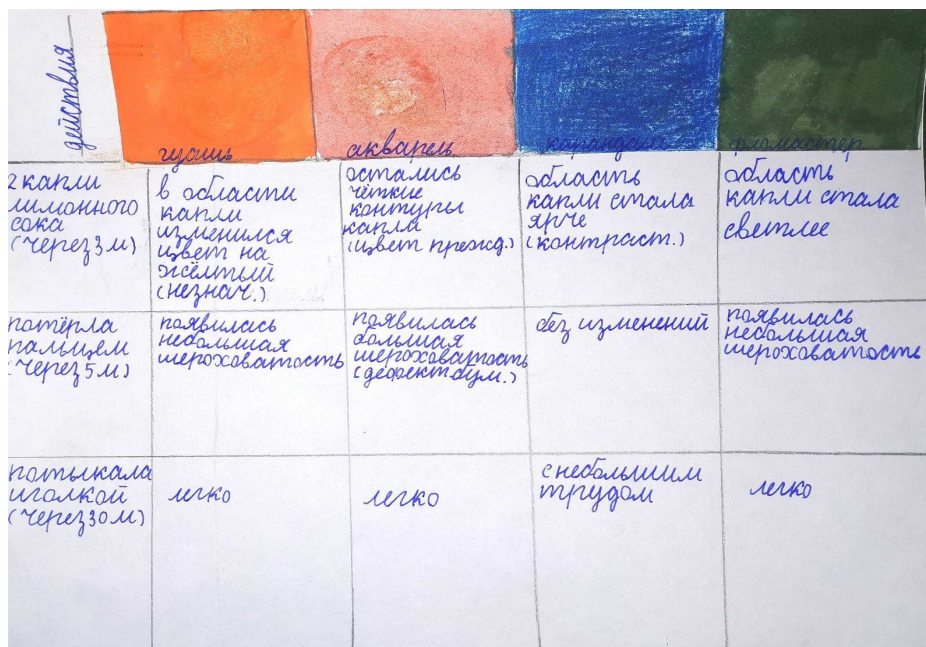 действия
гуашь
акварель
карандаш
фломастер
2 капли
лимонного
сока
(через 3 м)
в области
капли
изменился
цвет на
жёлтый
(незнач.)
остались
чёткие
контуры
капли
(цвет прежд.)
область
капли стала
ярче
(контраст.)
область
капли стала
светлее
потёрла
пальцем
(через 5 м)
появилась
небольшая
шероховатость
появилась
большая
шероховатость
(дефект бум.)
без изменений
появилась
небольшая
шероховатость
потыкала
иголкой
(через 30 м)
легко
легко
с небольшим
трудом
легко